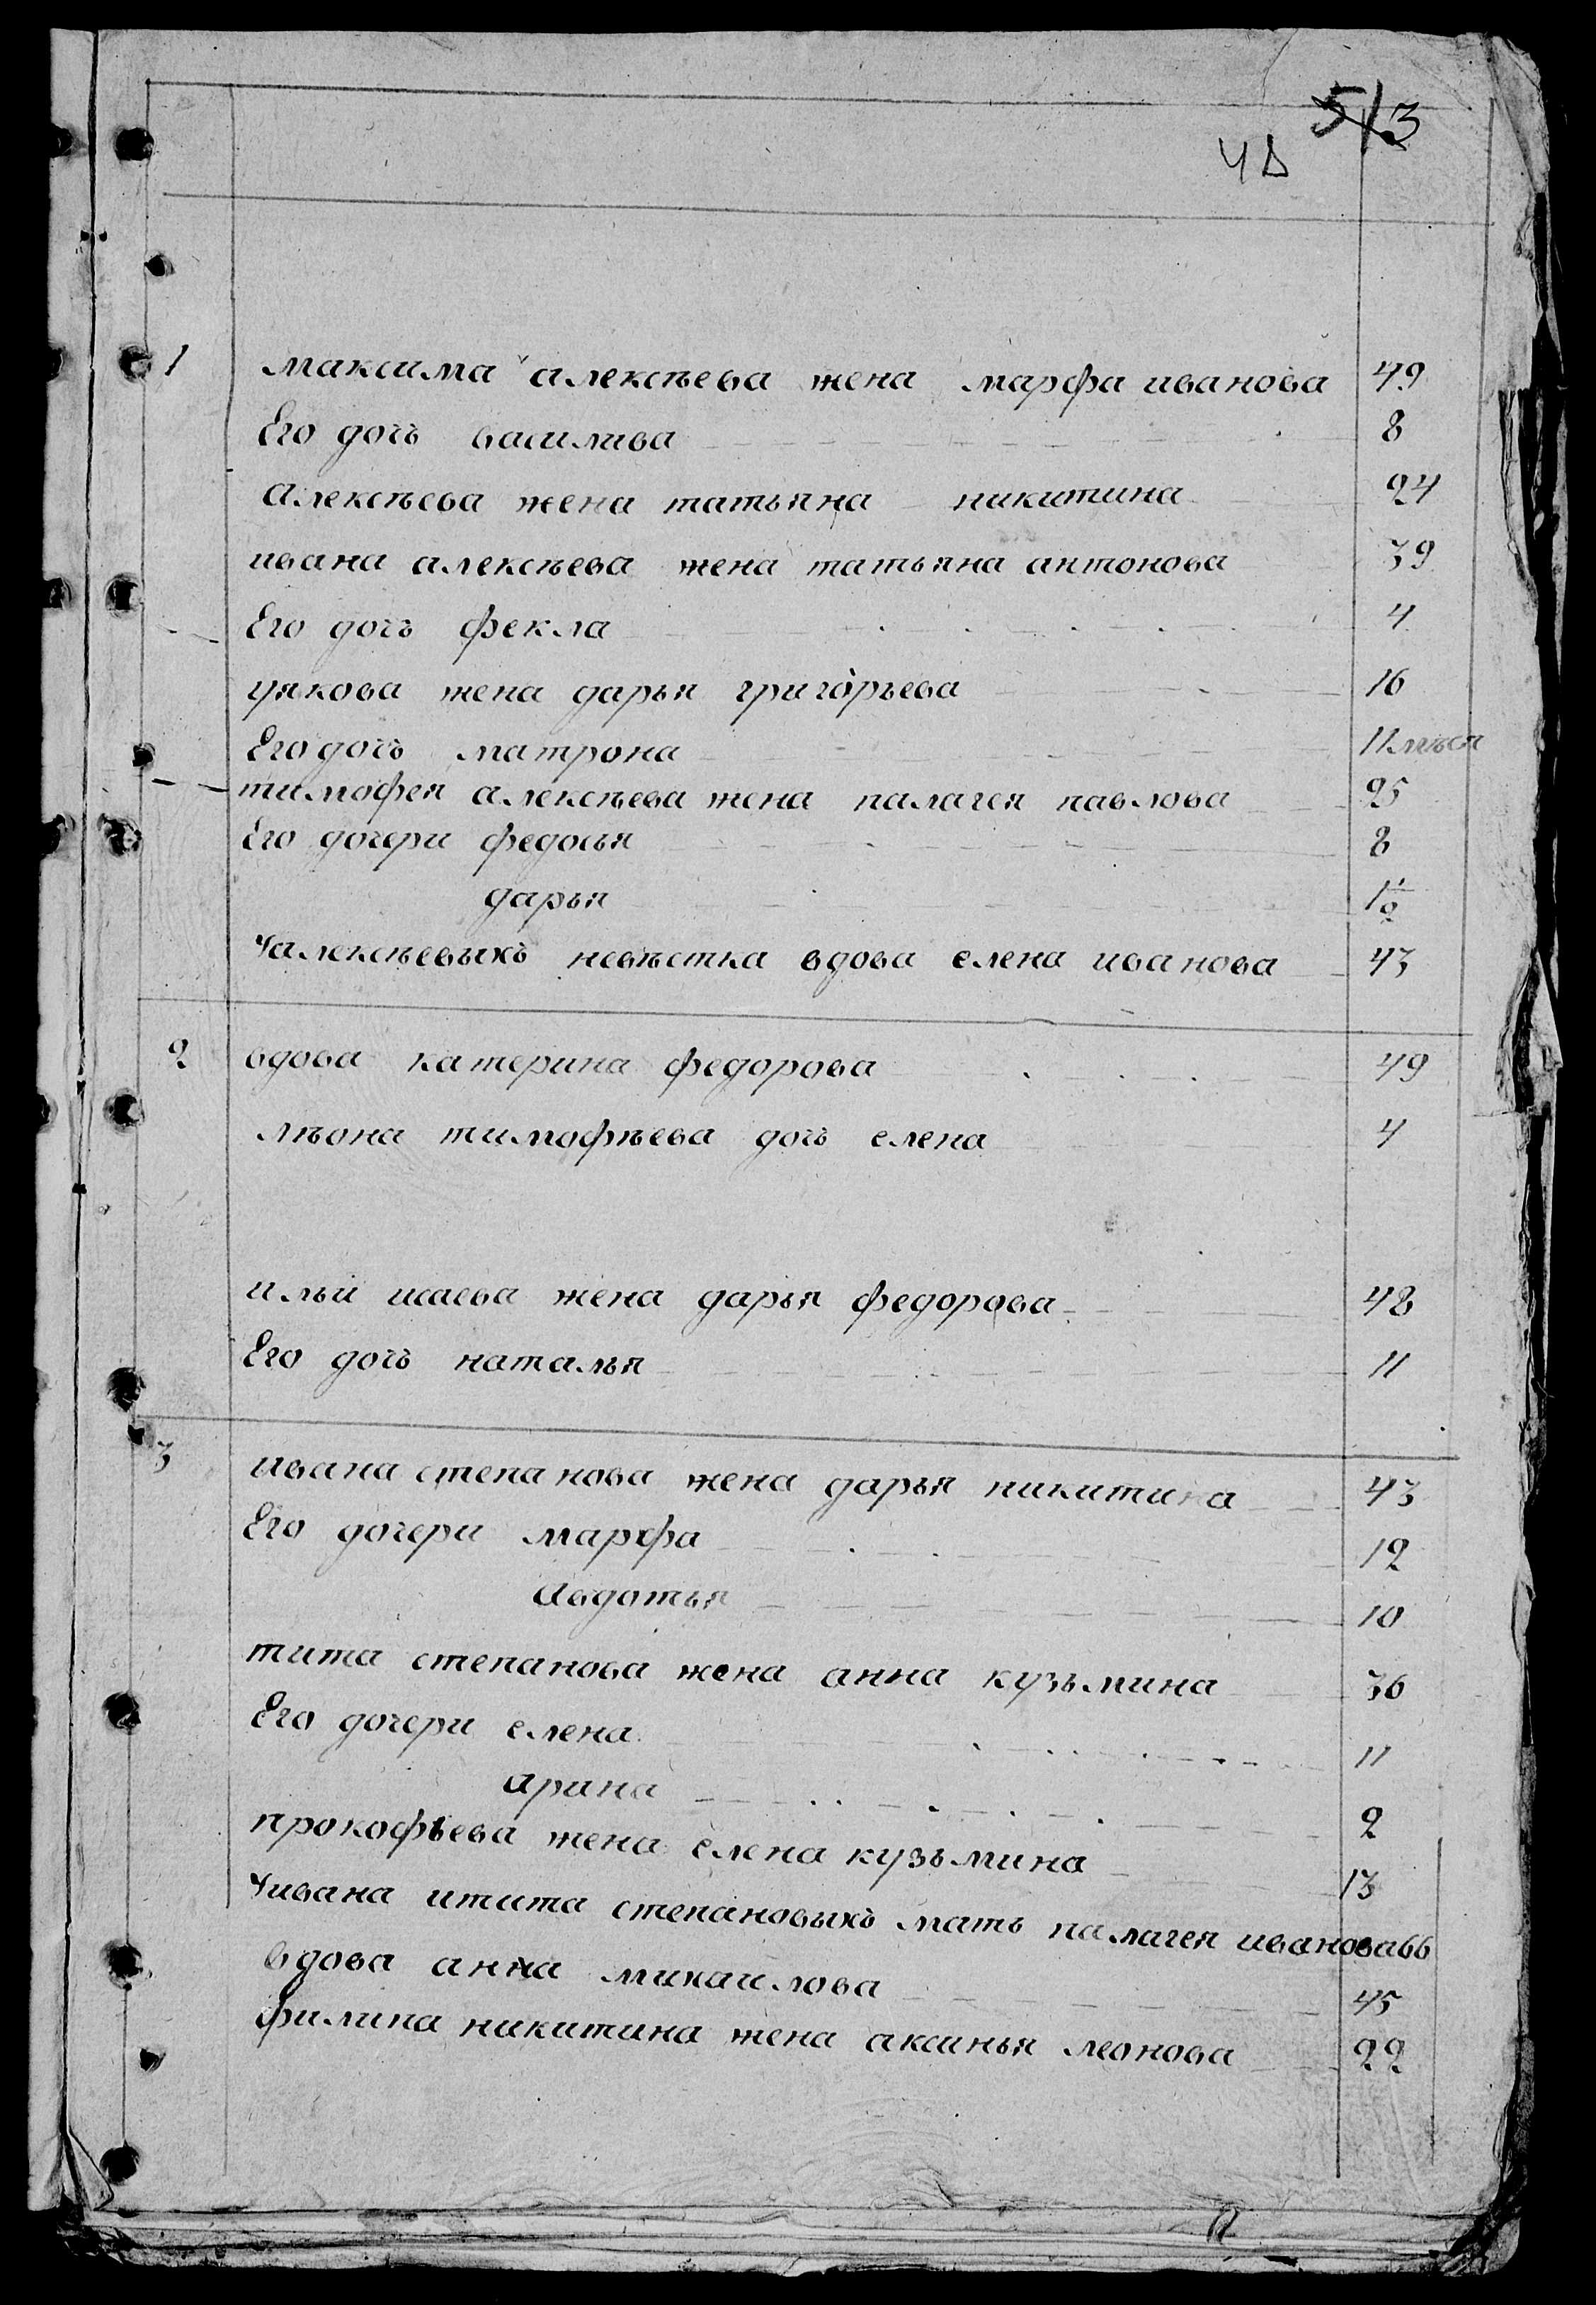 5/3
48
1 Максима алексѣева жена марфа иванова 49
Его дочь василиса 8
алексѣева жена татьяна никитина 24
ивана алексѣева жена татьяна антонова 39
Его дочь фекла 4
Уякова жена дарья григорьева 16
Его дочь матрона 11 мѣся
тимофея алексѣева жена палагея павлова 25
Его дочери федосья 8
дарья 1½
Уалексѣевыхъ невѣстка вдова елена иванова 43
2 вдова катерина федорова 49
лѣона тимофѣева дочь елена 4
ильи исаева жена дарья федорова 48
Его дочь наталья 11
3 ивана степанова жена дарья никитина 43
Его дочери марфа 12
Авдотья 10
тита степанова жена анна кузьмина 36
Его дочери елена 11
арина 2
прокофьева жена елена кузьмина 13
Уивана итита степановыхъ мать палагея иванова 66
вдова анна михаилова 45
филипа никитина жена аксинья леонова 22